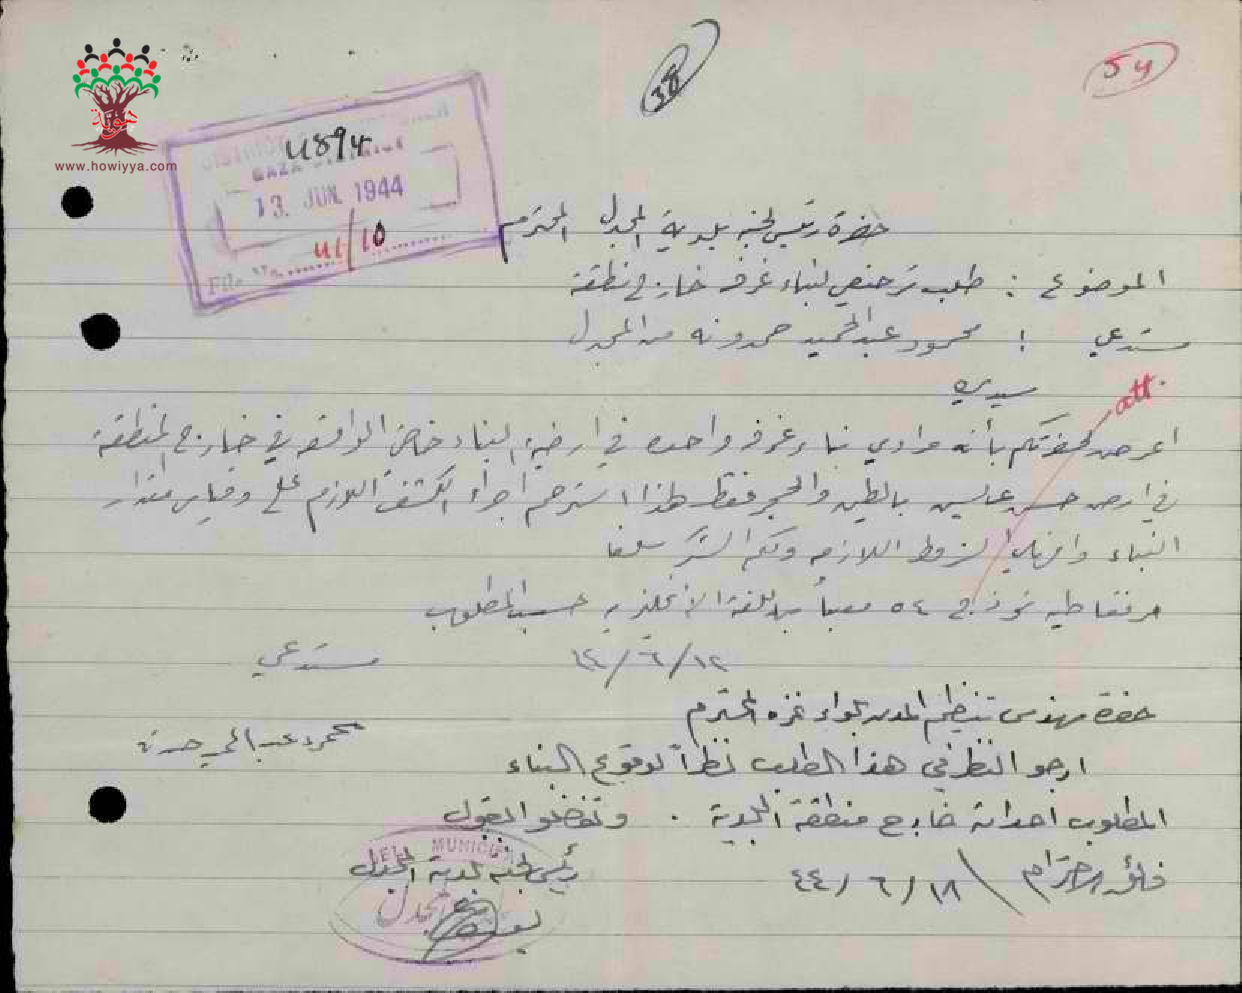 54
38
هوية
www.howiyya.com
DISTRICT
4894
GAZA DISTRICT
13 JUN 1944
41/10
File No.
حضرة رئيس لجنة بلدية المجدل المحترم
الموضوع : طلب ترخيص لبناء غرفه خارج نطقة
مستدعي : محمود عبد الحميد حمدونه من المجدل
سيدي
att.
اعرض لحضرتكم بأنه مرادي بناء غرفه واحده في ارضية البناء خاص الواقعه في خارج المنطقة
في ارض حسن بالطين والحجر فقط لهذا استرحم اجراء الكشف اللازم على وقياس مقدار
البناء الشروط اللازمه ولكم الشكر سلفا
مرفقا طيه نموذج ٥٤ معبأ باللغة الانجليزيه حسب المطلوب
١٢/٦/٤٤
مستدعي
محمود عبد الحميد حمدونه
حضرة مهندس تنظيم المدن بلواء غزه المحترم
ارجو النظر في هذا الطلب نظراً لوقوع البناء
المطلوب احداثه خارج منطقة البلدية . وتفضلوا بقبول
فائق الاحترام ١٨/٦/٤٤
رئيس لجنة بلدية المجدل
MUNICIPAL